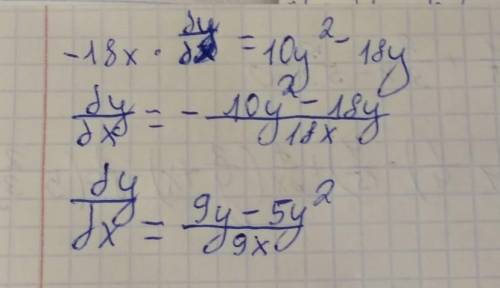 -18x · dy/dx = 10y² - 18y
dy/dx = - (10y² - 18y)/18x
dy/dx = (9y - 5y²)/9x